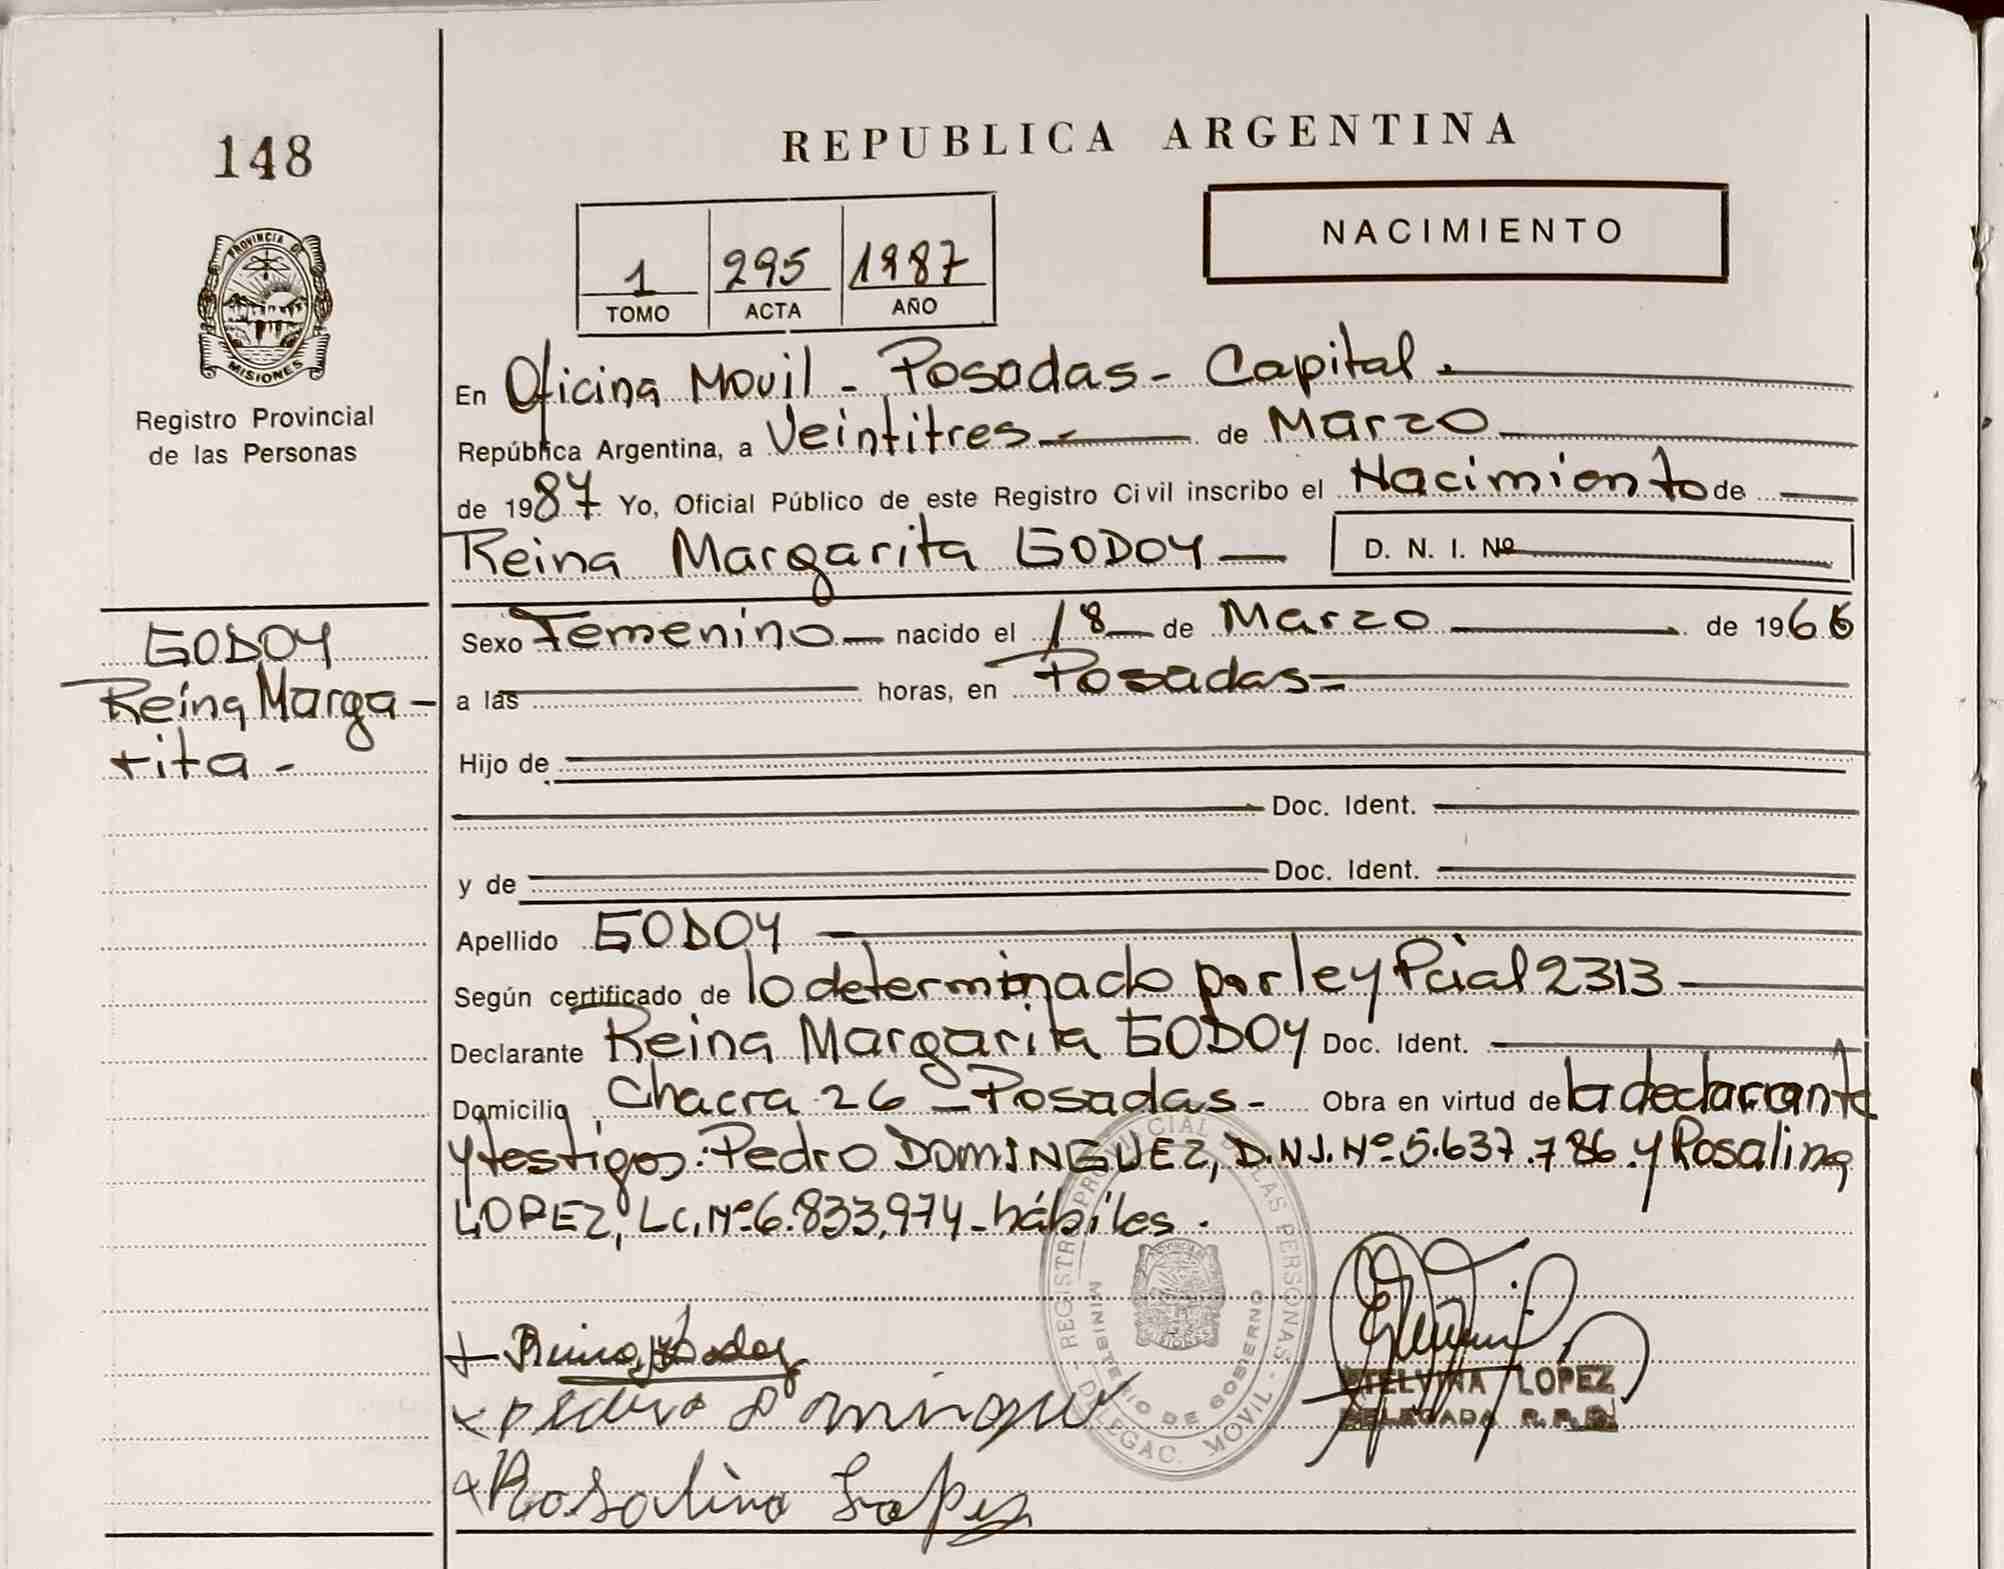 148
PROVINCIA DE
MISIONES
Registro Provincial
de las Personas
GODOY
Reina Marga-
rita-
REPUBLICA ARGENTINA
NACIMIENTO
1 295 1987
TOMO ACTA AÑO
En Oficina Movil - Posadas - Capital.
República Argentina, a Veintitres de Marzo
de 1987 Yo, Oficial Público de este Registro Civil inscribo el Nacimiento de
Reina Margarita GODOY D. N. I. Nº
Sexo Femenino nacido el 18 de Marzo de 1966
a las horas, en Posadas
Hijo de
Doc. Ident.
y de Doc. Ident.
Apellido GODOY
Según certificado de lo determinado por ley Pcial 2313
Declarante Reina Margarita GODOY Doc. Ident.
Domicilio Chacra 26 - Posadas - Obra en virtud de la declarante
y testigos: Pedro DOMINGUEZ, D.N.I. Nº 5.637.786 y Rosalina
LOPEZ, L.C. Nº 6.833.974 - hábiles.
REGISTRO PROVINCIAL DE LAS PERSONAS - DELEGAC. MOVIL -
MINISTERIO DE GOBIERNO
Reina Godoy
pedro Domingue
Rosalina Lopez
ETELVINA LOPEZ
DELEGADA R.P.P.